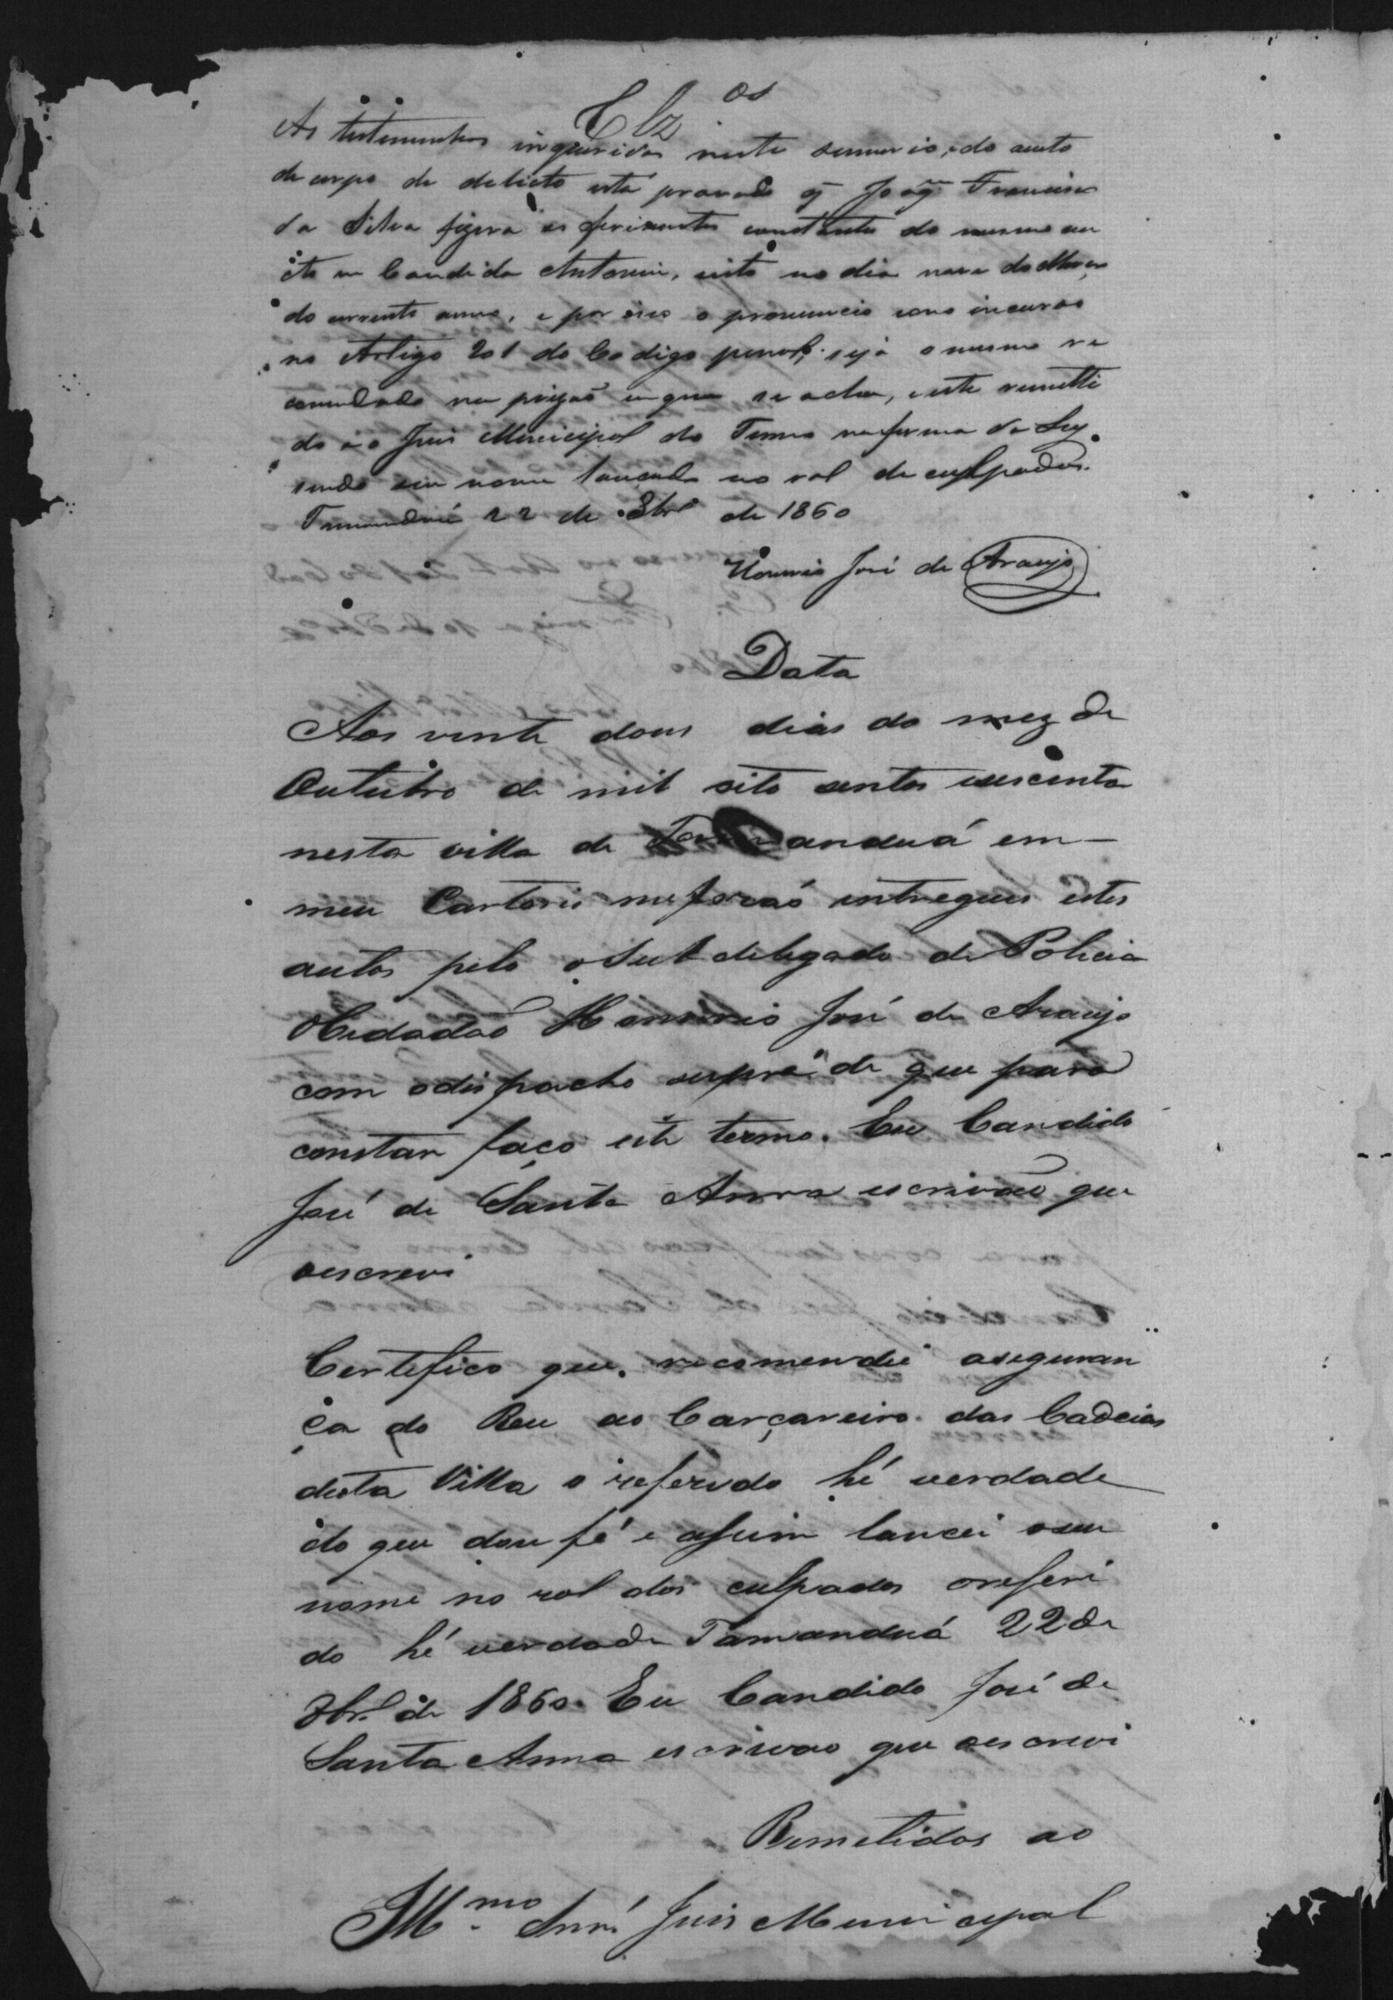 Clz.os
As testemunhas inqueridas neste sumario, e do auto
de corpo de delicto está provado q̃ João Francisco
da Silva fizera os ferimentos constantes do mesmo au
to em Candida Antonia, isto no dia nove de Março
do corrente anno, e por isso o pronuncio como incurso
no Artigo 201 do Codigo penal; seja o mesmo re
comendado na prizaõ em que se acha, e este remetti
do ao Juis Municipal do Termo na forma da Ley,
sendo seu nome lançado no rol de culpados.
Tamanduá 22 de 8brº de 1860
Honorio José de Araujo
Data
Aos vinte dous dias do mez de
Outubro de mil oito sentos e secenta
nesta villa de Tamanduá em
meu Cartorio me foraõ entregues estes
autos pelo o Subdelegado de Policia
o Cidadaõ Honorio José de Araujo
com o dispacho supra de que para
constar faço este termo. Eu Candido
José de Santa Anna escrivaõ que
o escrevi
Certefico que recomendei a seguran
ça do Reu ao Carçareiro das Cadeias
desta Villa o referido hé verdade
do que dou fé e assim lancei o seu
nome no rol dos culpados o referi
do hé verdade Tamanduá 22 de
8brº de 1860. Eu Candido José de
Santa Anna escrivao que o escrevi
Remetidos ao
Illmo. Snr. Juis Municipal